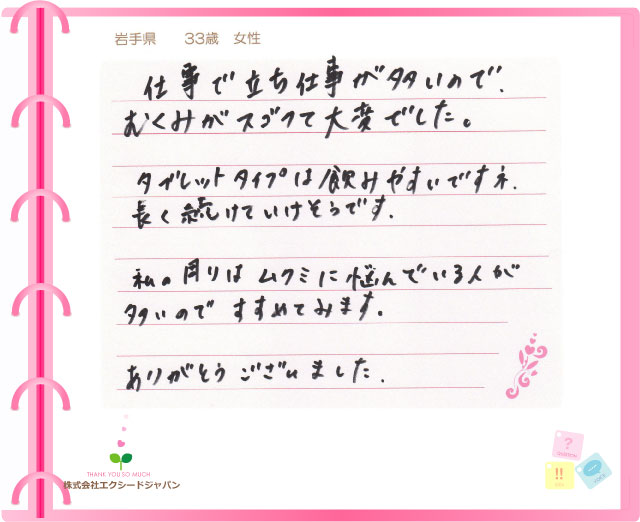 岩手県　33歳　女性
仕事で立ち仕事が多いので、
むくみがスゴクて大変でした。
タブレットタイプは飲みやすいですネ.
長く続けていけそうです.
私の周りはムクミに悩んでいる人が
多いので すすめてみます。
ありがとうございました.
THANK YOU SO MUCH
株式会社エクシードジャパン
?
!!